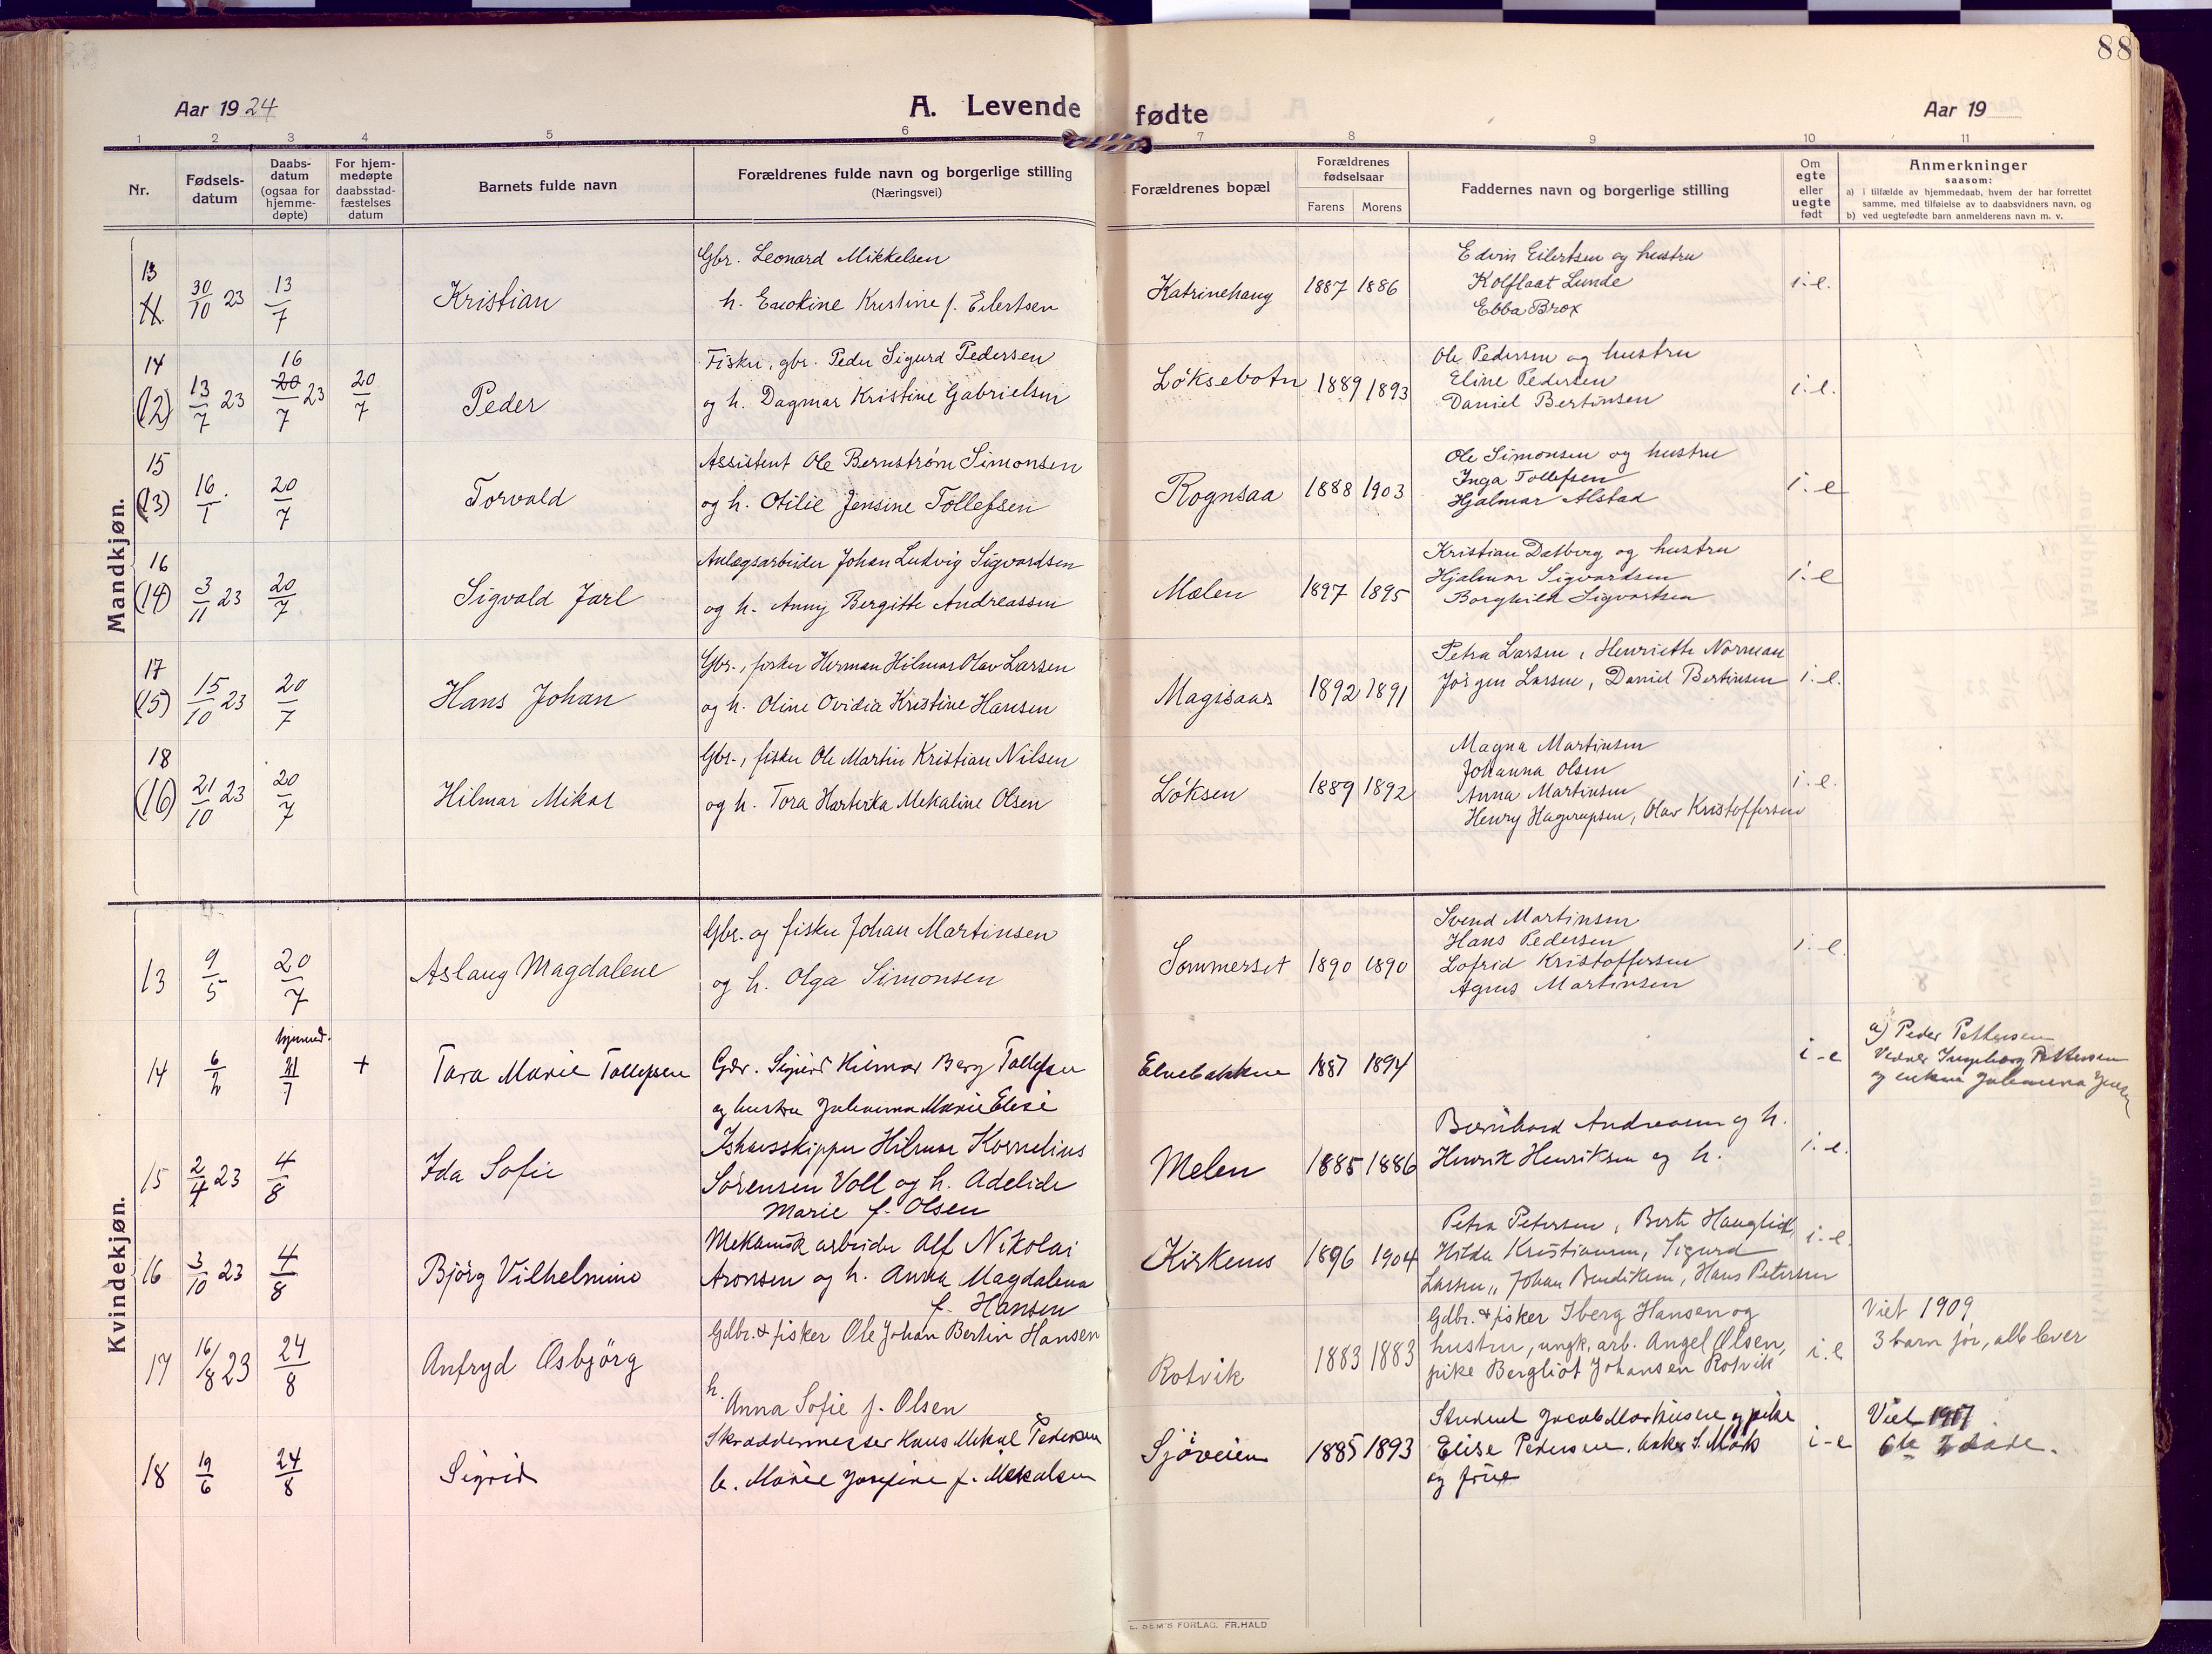 88
Aar 1924
A. Levende fødte
Aar 19
1 2 3 4 5 6 7 8 9 10 11
Nr.
Fødsels-
datum
Daabs-
datum
(ogsaa for
hjemme-
døpte)
For hjem-
medøpte
daabsstad-
fæstelses
datum
Barnets fulde navn
Forældrenes fulde navn og borgerlige stilling
(Næringsvei)
Forældrenes bopæl
Forældrenes
fødselsaar
Farens Morens
Faddernes navn og borgerlige stilling
Om
egte
eller
uegte
født
Anmerkninger
saasom:
a) i tilfælde av hjemmedaab, hvem der har forrettet
samme, med tilføielse av to daabsvidners navn, og
b) ved uegtefødte barn anmelderens navn m. v.
Mandkjøn.
13
11. 30/10 23 13/7 Kristian
Gbr. Leonard Mikkelsen
h. Kristine f. Eilertsen
Katrinehaug 1887 1886
Edvin Eilertsen og hustru
Kolflaat Lunde
Ebba Brox
i. e.
14
(12) 13/7 23 16 20/7 23 20/7 Peder
Fisker, gbr. Peder Sigurd Pedersen
og h. Dagmar Kristine Gabrielsen
Løksebotn 1889 1893
Ole Pedersen og hustru
Eline Pedersen
Daniel Bertinsen
i. e.
15
(13) 16/1 20/7 Torvald
Assistent Ole Bernstrøm Simonsen
og h. Otilie Jensine Tollefsen
Rognsaa 1888 1903
Ole Simonsen og hustru
Inga Tollefsen
Hjalmar Alstad
i. e
16
(14) 3/11 23 20/7 Sigvald Jarl
Anlægsarbeider Johan Ludvig Sigvardsen
og h. Anny Bergitte Andreassen
Mælen 1897 1895
Kristian Dalberg og hustru
Hjalmar Sigvardsen
Borghild Sigvartsen
i. e
17
(15) 15/10 23 20/7 Hans Johan
Gbr., fisker Herman Hilmar Olav Larsen
og h. Oline Ovidia Kristine Hansen
1892 1891
Petra Larsen, Henriette Norman
Jørgen Larsen, Daniel Bertinsen
i. e.
18
(16) 21/10 23 20/7 Hilmar Mikal
Gbr., fisker Ole Martin Kristian Nilsen
og h. Tora Mekaline Olsen
Løksen 1889 1892
Magna Martinsen
Johanna Olsen
Anna Martinsen
Henry Hagerupsen, Olav Kristoffersen
i. e.
Kvindekjøn.
13 9/5 20/7 Aslaug Magdalene
Gbr. og fisker Johan Martinsen
og h. Olga Simonsen
Sommerset 1890 1890
Svend Martinsen
Hans Pedersen
Lofrid Kristoffersen
Agnes Martinsen
i. e.
hjemmed.
14 21/7 + Tora Marie Tollefsen
Gbr. Sigurd Hilmar Berg Tollefsen
og hustru Johanna Marie Elise
Elvebakken 1887 1894
i-e
a) Peder Pettersen
Vidner Ingeborg Pettersen
og enken Johanna
15 2/4 23 4/8 Ida Sofie
Ishavsskipper Hilmar Kornelius
Sørensen Voll og h. Adelide
Marie f. Olsen
Melen 1885 1886
Bernhard Andreasen og h.
Henrik Henriksen og h.
i. e.
16 3/10 23 4/8 Bjørg Vilhelmine
Mekanisk arbeider Alf Nikolai
Aronsen og h. Anna Magdalena
f. Hansen
Kirkenes 1896 1904
Petra Petersen, Berte Hauglid,
Hilda Kristiansen, Sigurd
Larsen, Johan Bendiksen, Hans Petersen
i. e.
17 16/8 23 24/8 Anfryd Osbjørg
Gdbr. & fisker Ole Johan Bertin Hansen
h.
Anna Sofie f. Olsen
Rotvik 1883 1883
Gdbr. & fisker Iberg Hansen og
hustru, ungk. arb. Angel Olsen,
pike Bergliot Johansen Rotvik
i. e
Viet 1909
3 barn før, alle lever
18 19/6 24/8 Sigrid
Skræddermester Hans Mikal Pedersen
h. Marie Josefine f. Mikalsen
Sjøveien 1885 1893
Student Jacob Markussen og pike
Elise Pedersen, S. Mørk
og frue
i-e
Viet 1917
6te
E. SEM'S FORLAG. FR.HALD